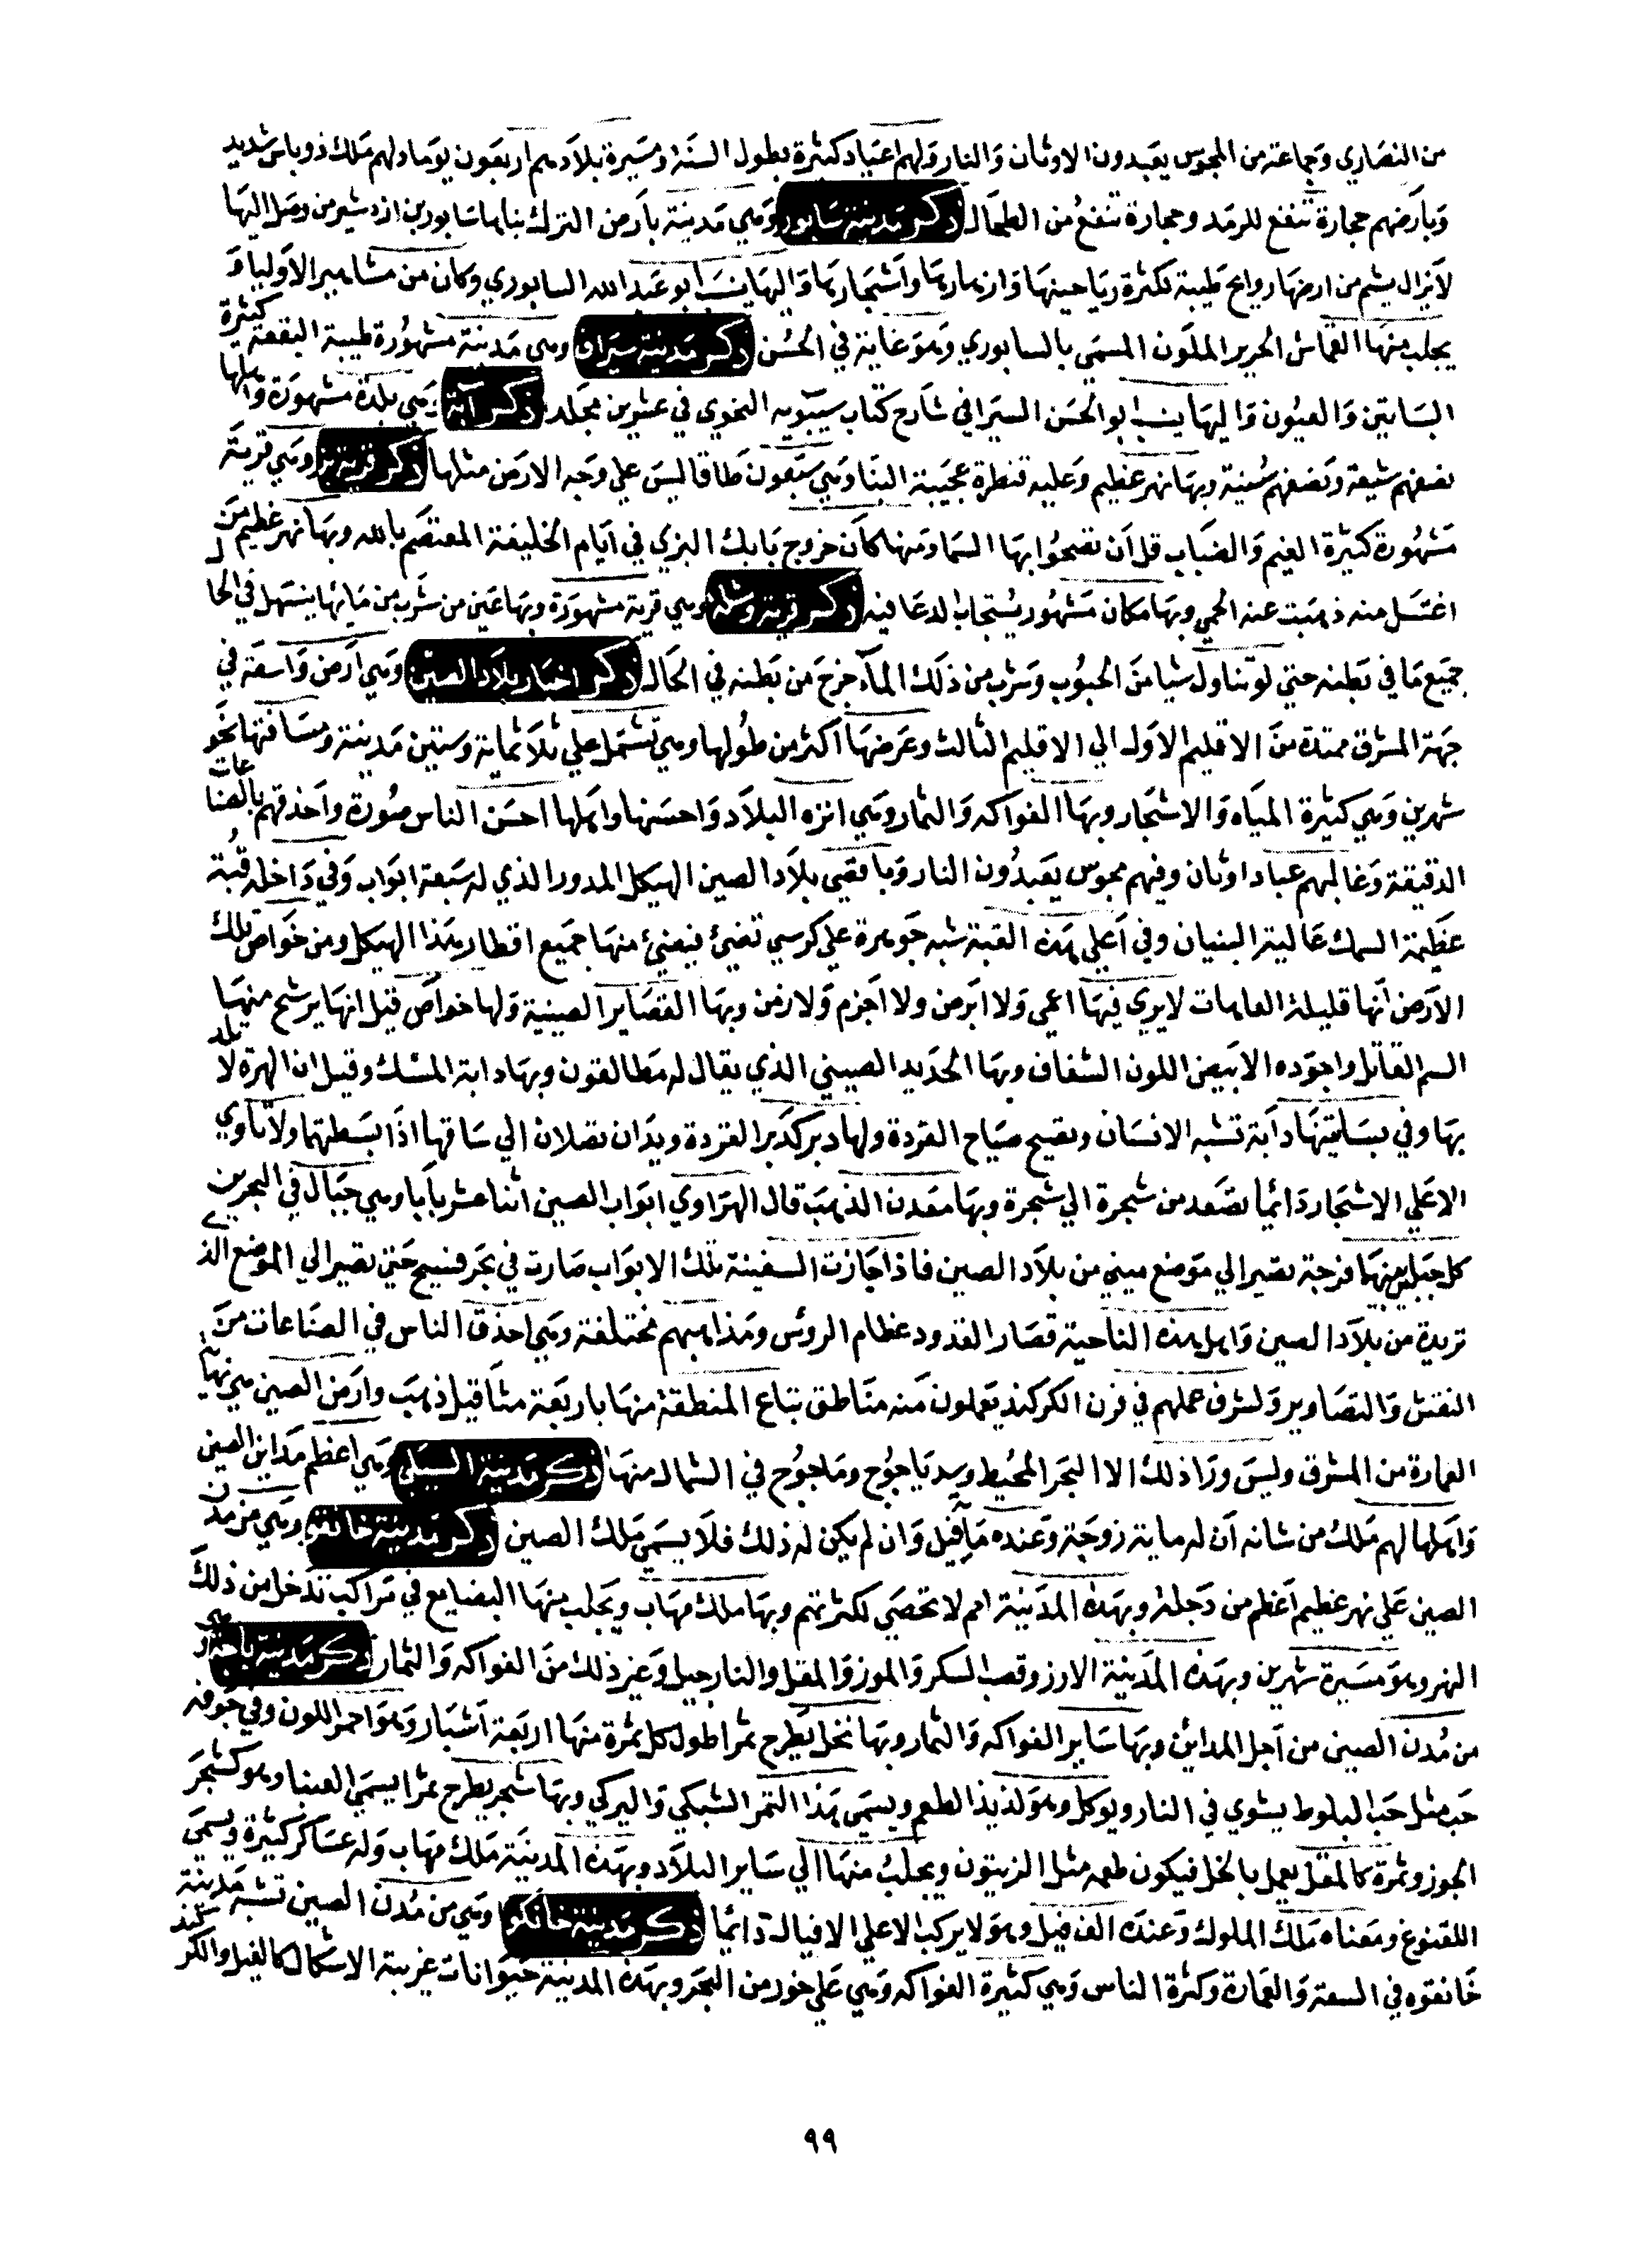 من النصاري وجماعة من المجوس يعبدون الاوثان والنار ولهم اعياد كثيرة بطول السنة ومسيرة بلادهم اربعون يوما ولهم ملك ذو باس شديد
وبارضهم حجارة تنفع للرمد وحجارة تنفع من الطحال ذكر مدينة سابور وهي مدينة بارض الترك بناها سابور بن ازدشير من وصل اليها
لا يزال يشم من ارضها روايح طيبة لكثرة رياحينها وازهارها واشجارها واليها ينسب ابو عبد الله السابوري وكان من مشاهير الاولياء و
يجلب منها القماش الحرير الملون المسمى بالسابوري وهو غاية في الحسن ذكر مدينة سيراف وهي مدينة مشهورة طيبة البقعة كثيرة
البساتين والعيون واليها ينسب ابو الحسن السيرافي شارح كتاب سيبويه النحوي في عشرين مجلد ذكر آبة وهي بلدة مشهورة واهلها
نصفهم شيعة ونصفهم سنية وبها نهر عظيم وعليه قنطرة عجيبة البنا وهي سبعون طاقا ليس علي وجه الارض مثلها ذكر قرية بز وهي قرية
مشهورة كثيرة الغيم والضباب قل ان تصحوا بها السما ومنها كان خروج بابك البزي في ايام الخليفة المعتصم بالله وبها نهر عظيم من
اغتسل منه ذهبت عنه الحمي وبها مكان مشهور يستجاب الدعا فيه ذكر قرية وشلة وهي قرية مشهورة وبها عين من شرب من مائها ينسهل في الحال
جميع ما في بطنه حتي لو تناول شيا من الحبوب وشرب من ذلك المآء خرج من بطنه في الحال ذكر اخبار بلاد الصين وهي ارض واسعة في
جهة المشرق ممتدة من الاقليم الاول الي الاقليم الثالث وعرضها اكثر من طولها وهي تشتمل علي ثلاثماية وستين مدينة ومسافتها نحو
شهرين وهي كثيرة المياه والاشجار وبها الفواكه والثمار وهي انزه البلاد واحسنها واهلها احسن الناس صورة واحذقهم بالصناعات
الدقيقة وغالبهم عباد اوثان وفيهم مجوس يعبدون النار وباقصي بلاد الصين الهيكل المدور الذي له سبعة ابواب وفي داخله قبة
عظيمة السمك عالية البنيان وفي اعلي هذه القبة شبه جوهرة علي كرسي تضئ فيضئ منها جميع اقطار هذا الهيكل ومن خواص تلك
الارض انها قليلة العاهات لا يري فيها اعمي ولا ابرص ولا اجزم ولا زمن وبها القصاير الصينية ولها خواص قيل انها يرشح منها
السم القاتل واجوده الابيض اللون الشفاف وبها الحديد الصيني الذي يقال له مطالقون وبها دابة المسك وقيل ان الهرة لا تلد
بها وفي بساتينها دابة تشبه الانسان وتصيح صياح القردة ولها دبر كدبر القردة ويدان تصلان الي ساقها اذا بسطتهما ولا تاوي
الا علي الاشجار دائما تصعد من شجرة الي شجرة وبها معدن الذهب قال الهراوي ابواب الصين اثنا عشر بابا وهي جبال في البحر بين
كل جبلين منهما فرجة تصير الي موضع مبني من بلاد الصين فاذا جازت السفينة تلك الابواب صارت في بحر فسيح حتي تصير الي الموضع الذي
تريده من بلاد الصين واهل هذه الناحية قصار القدود عظام الروس ومذاهبهم مختلفة وهي احذق الناس في الصناعات من
النقش والتصاوير ولشرف عملهم في قرن الكركند يعملون منه مناطق تباع المنطقة منها باربعة مثاقيل ذهب وارض الصين هي نهاية
العمارة من المشرق وليس ورا ذلك الا البحر المحيط وسد ياجوج وماجوج في الشمال منها ذكر مدينة السيلي وهي اعظم مداين الصين
واهلها لهم ملك من شانه ان له ماية زوجة وعنده ماية فيل وان لم يكن له ذلك فلا يسمي ملك الصين ذكر مدينة خانقو وهي من مدن
الصين علي نهر عظيم اعظم من دجلة وبهذه المدينة امم لا تحصي لكثرتهم وبها ملك مهاب ويجلب منها البضايع في مراكب تدخل من ذلك
النهر وهو مسيرة شهرين وبهذه المدينة الارز وقصب السكر والموز والمقل والنارجيل وغير ذلك من الفواكه والثمار ذكر مدينة باجة وهي
من مدن الصين من اجل المدائن وبها ساير الفواكه والثمار وبها نخل يطرح ثمرا طول كل ثمرة منها اربعة اشبار وهو احمر اللون وفي جوفه
حب مثل حب البلوط يشوي في النار ويوكل وهو لذيذ الطعم ويسمي هذا الثمر الشبكي والبركي وبها شجر يطرح ثمرا يسمي العنبا وهو كشجر
الجوز وثمرة كالمقل يعمل بالخل فيكون طعمه مثل الزيتون ويجلب منها الي ساير البلاد وبهذه المدينة ملك مهاب وله عساكر كثيرة ويسمي
اللقنوغ ومعناه ملك الملوك وعنده الف فيل وهو لا يركب الا علي الافيال دائما ذكر مدينة خانكو وهي من مدن الصين تشبه مدينة
خانقوه في السعة والعمارة وكثرة الناس وهي كثيرة الفواكه وهي علي خور من البحر وبهذه المدينة حيوانات غريبة الاشكال كالفيل والكركند
٩٩